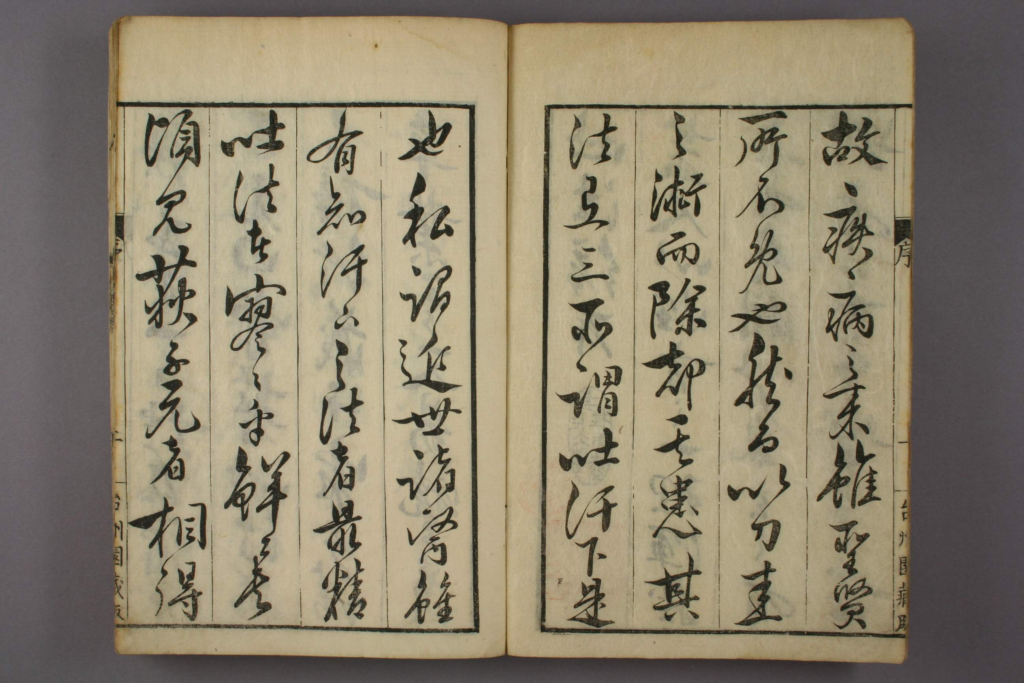 序
一
台州園蔵版
故疾病之来雖聖賢
所不免也然有以刀圭
之術而除却其患其
法三所謂吐汗下是
也私謂近世諸醫雖
有知汗下之法者最精
吐法者寥々乎鮮矣
頃見荻子元者相得
序
台州園蔵版